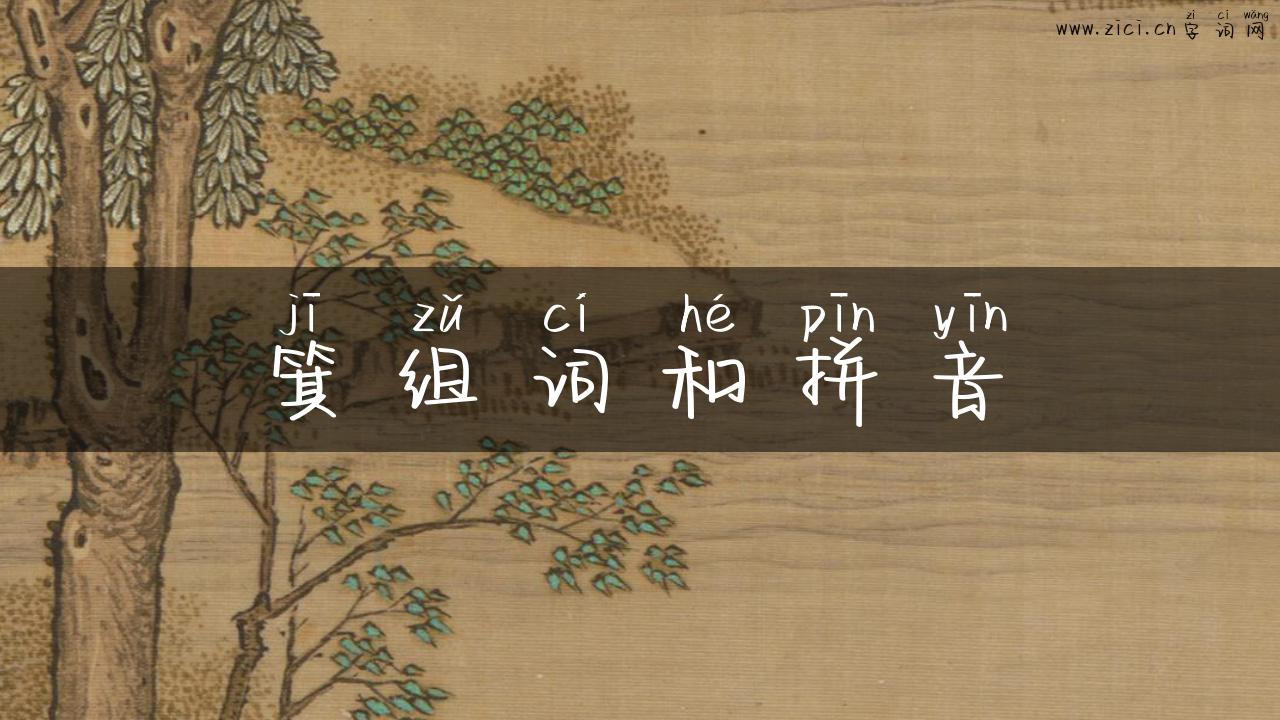 zì cí wǎng
www.zici.cn 字词网
jī zǔ cí hé pīn yīn
箕组词和拼音